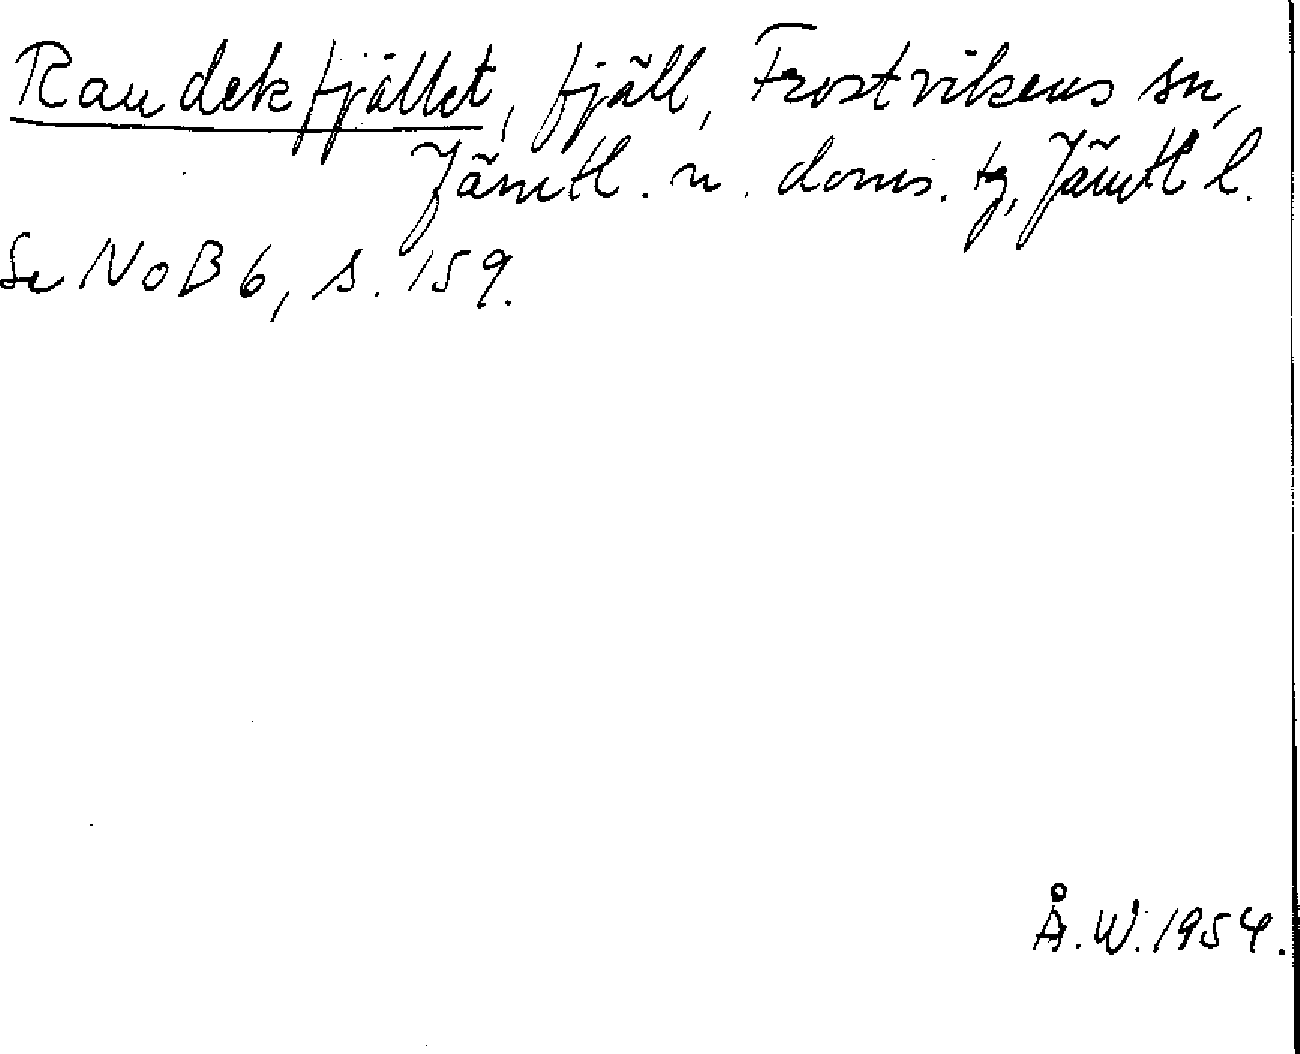 Raudekfjället, fjäll, Frostvikens sn,
Jämtl. n. doms. tg, Jämtl l.
Se NoB 6, s. 159.
Å.W. 1954.